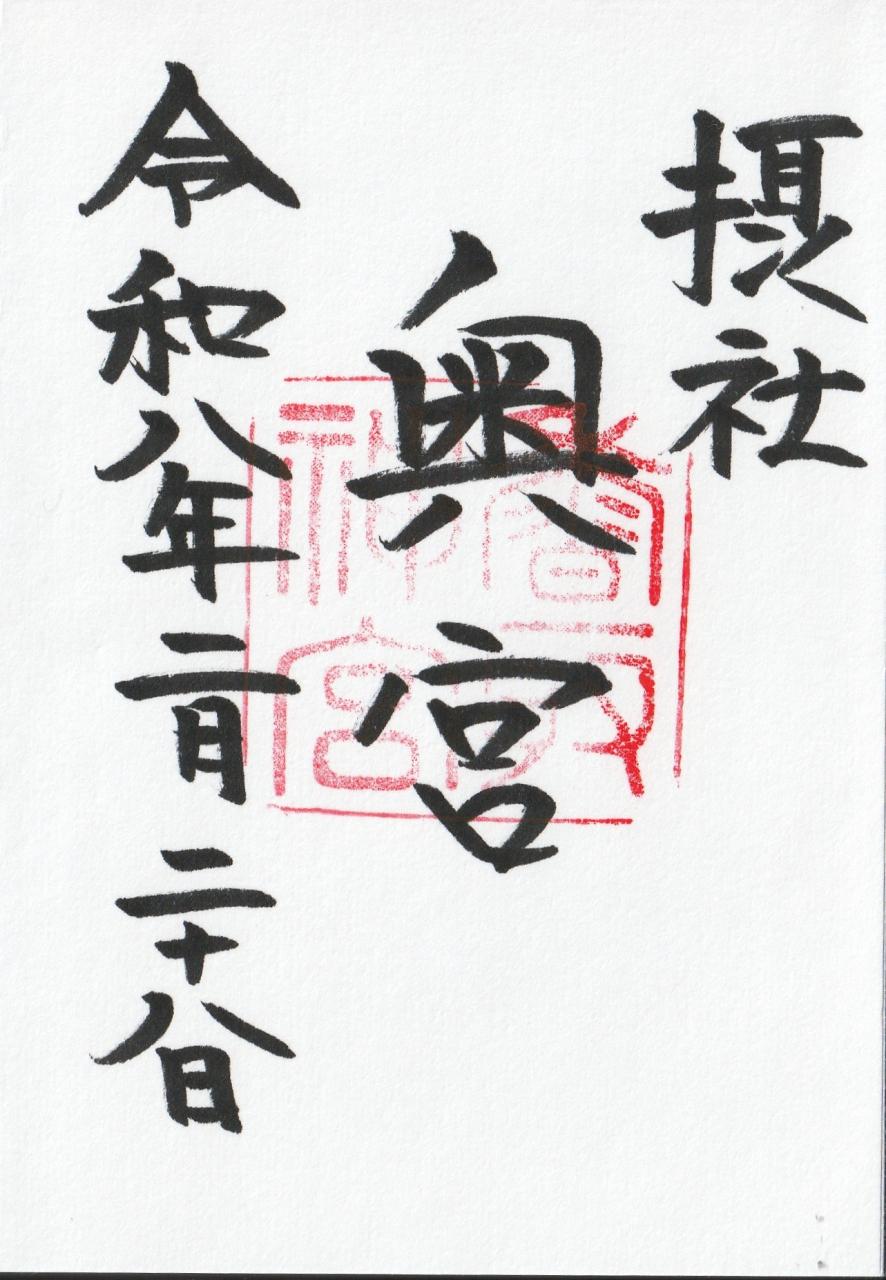 摂社
奥宮
香取神宮
令和八年二月二十八日